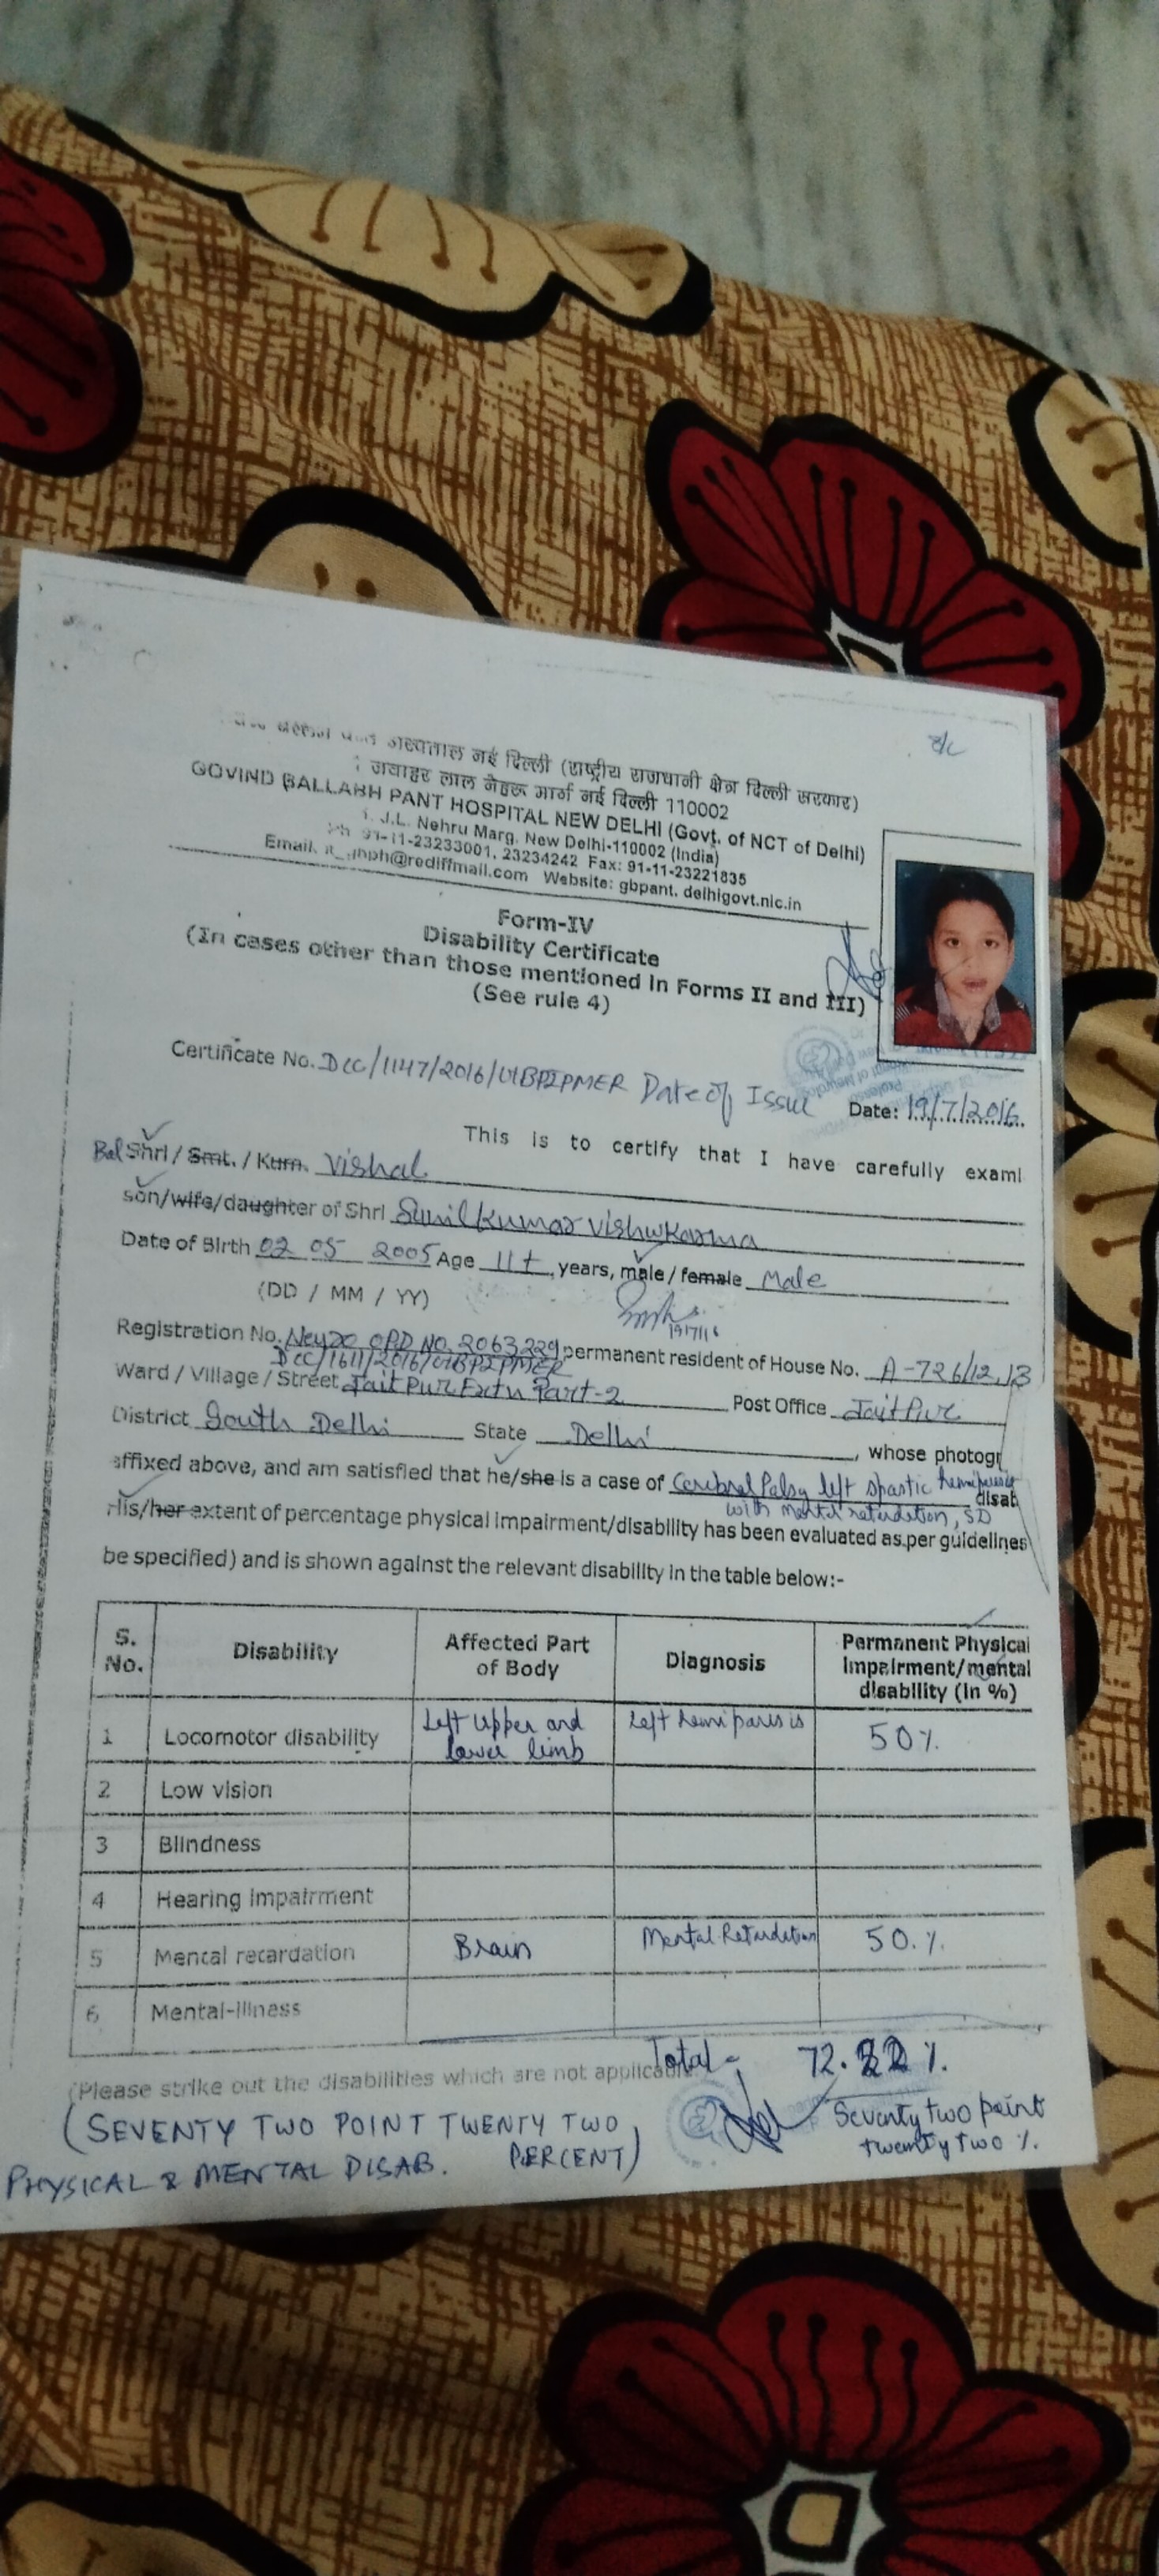 अस्पताल नई दिल्ली (राष्ट्रीय राजधानी क्षेत्र दिल्ली सरकार)
जवाहर लाल नेहरू मार्ग नई दिल्ली 110002
GOVIND BALLABH PANT HOSPITAL NEW DELHI (Govt. of NCT of Delhi)
1, J.L. Nehru Marg, New Delhi-110002 (India)
Ph 91-11-23233001, 23234242 Fax: 91-11-23221835
Email. @rediffmail.com Website: gbpant. delhigovt.nic.in
Form-IV
Disability Certificate
(In cases other than those mentioned in Forms II and III)
(See rule 4)
Certificate No. DCC/1147/2016/ Date of Issue Date: 19/7/2016
This is to certify that I have carefully exami
Bal Shri / Smt. / Kum. Vishal
son/wife/daughter of Shri Sunil Kumar Vishwkarma
Date of Birth 02 05 2005 Age 11+ years, male / female Male
(DD / MM / YY)
19/7/16
Registration No. Neuro OPD NO. 2063229 permanent resident of House No. A-726/12,13
DCC/1611/2016/
Ward / Village / Street Jait Pur Extn Part-2 Post Office Jait Pur
District South Delhi State Delhi , whose photogr
affixed above, and am satisfied that he/she is a case of Cerebral Palsy left spastic hemiparesis disab
with mental retardation, SD
His/her extent of percentage physical impairment/disability has been evaluated as per guidelines
be specified) and is shown against the relevant disability in the table below:-
S. No. Disability Affected Part of Body Diagnosis Permanent Physical impairment/mental disability (in %)
1 Locomotor disability Left Upper and lower limb Left hemiparesis 50%
2 Low vision
3 Blindness
4 Hearing Impairment
5 Mental retardation Brain Mental Retardation 50.%
6 Mental-illness
Total - 72.22%
(Please strike out the disabilities which are not applicable
(SEVENTY TWO POINT TWENTY TWO PERCENT)
Seventy two point twenty two %.
PHYSICAL & MENTAL DISAB.